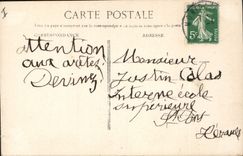 CARTE POSTALE
CORRESPONDANCE
ADRESSE
attention
aux arêtes
Monsieur
Justin Calas
Interne école
supérieure
St Pons
Hérault